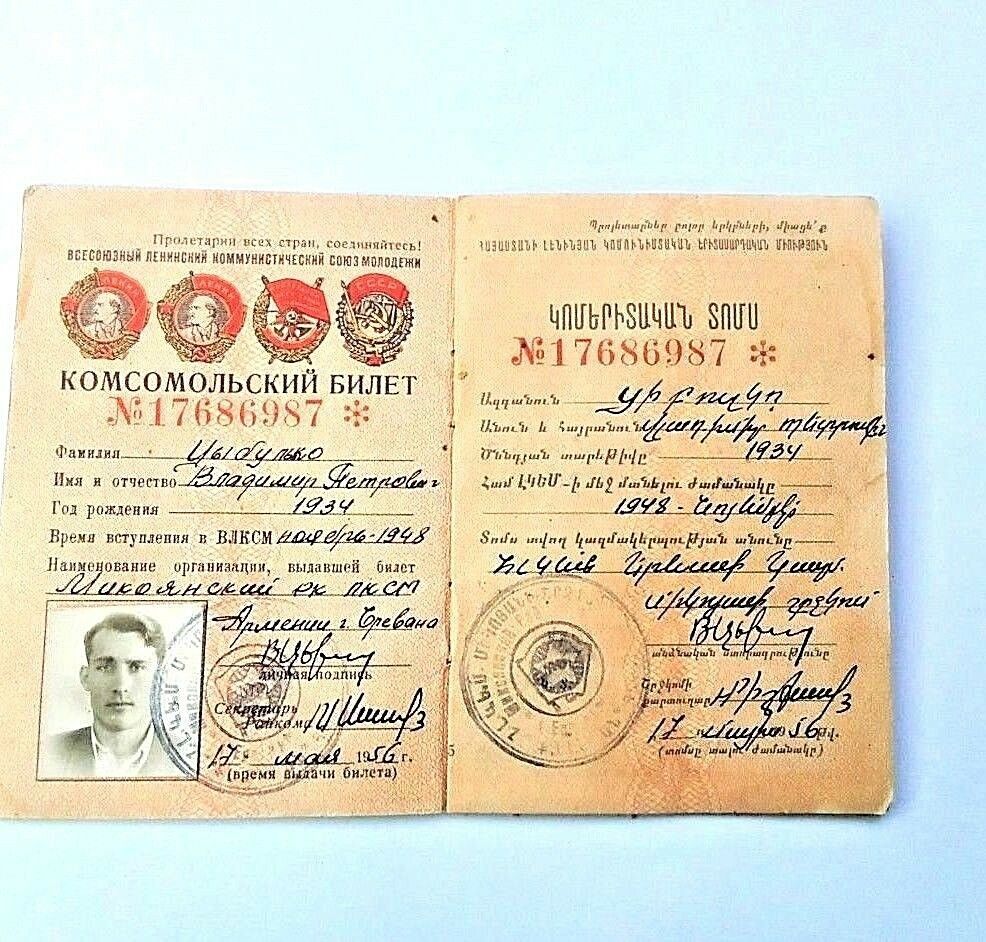 Пролетарии всех стран, соединяйтесь!
ВСЕСОЮЗНЫЙ ЛЕНИНСКИЙ КОММУНИСТИЧЕСКИЙ СОЮЗ МОЛОДЕЖИ
КОМСОМОЛЬСКИЙ БИЛЕТ
№17686987
Фамилия Цыбулько
Имя и отчество Владимир Петрович
Год рождения 1934
Время вступления в ВЛКСМ ноябрь-1948
Наименование организации, выдавшей билет
Микоянский рк лксм
Армении г. Еревана
личная подпись
Секретарь
Райкома
17 мая 1956 г.
(время выдачи билета)
Պրոլետարներ բոլոր երկրների, միացե՛ք
ՀԱՅԱՍՏԱՆԻ ԼԵՆԻՆՅԱՆ ԿՈՄՈՒՆԻՍՏԱԿԱՆ ԵՐԻՏԱՍԱՐԴԱԿԱՆ ՄԻՈՒԹՅՈՒՆ
ԿՈՄԵՐԻՏԱԿԱՆ ՏՈՄՍ
№17686987
Ազգանուն Ցիբուլկո
Անուն և հայրանուն Վլադիմիր Պետրովիչ
Ծննդյան տարեթիվը 1934
Համ ԼԿԵՄ-ի մեջ մտնելու ժամանակը
1948 - Նոյեմբեր
Տոմս տվող կազմակերպության անունը
անձնական ստորագրությունը
Շրջկոմի
քարտուղար
17 մայիս 1956 թվ.
(տոմսը տալու ժամանակը)